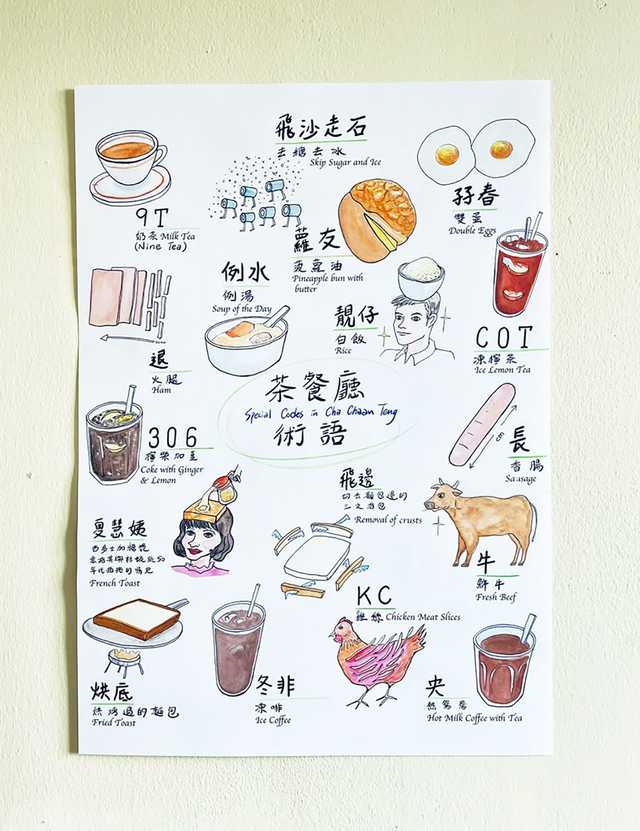 飛沙走石
去糖去冰
Skip Sugar and Ice
9T
奶茶 Milk Tea
(Nine Tea)
孖春
雙蛋
Double Eggs
蘿友
菠蘿油
Pineapple bun with
butter
例水
例湯
Soup of the Day
靚仔
白飯
Rice
COT
凍檸茶
Ice Lemon Tea
退
火腿
Ham
茶餐廳
Special Codes in Cha Chaan Teng
術語
306
檸樂加姜
Coke with Ginger
& Lemon
長
香腸
Sausage
飛邊
切去麵包邊的
三文治包
Removal of crusts
夏慧姨
西多士加糖漿
French Toast
牛
鮮牛
Fresh Beef
KC
雞絲 Chicken Meat Slices
烘底
烘烤過的麵包
Fried Toast
冬非
凍啡
Ice Coffee
央
熱鴛鴦
Hot Milk Coffee with Tea